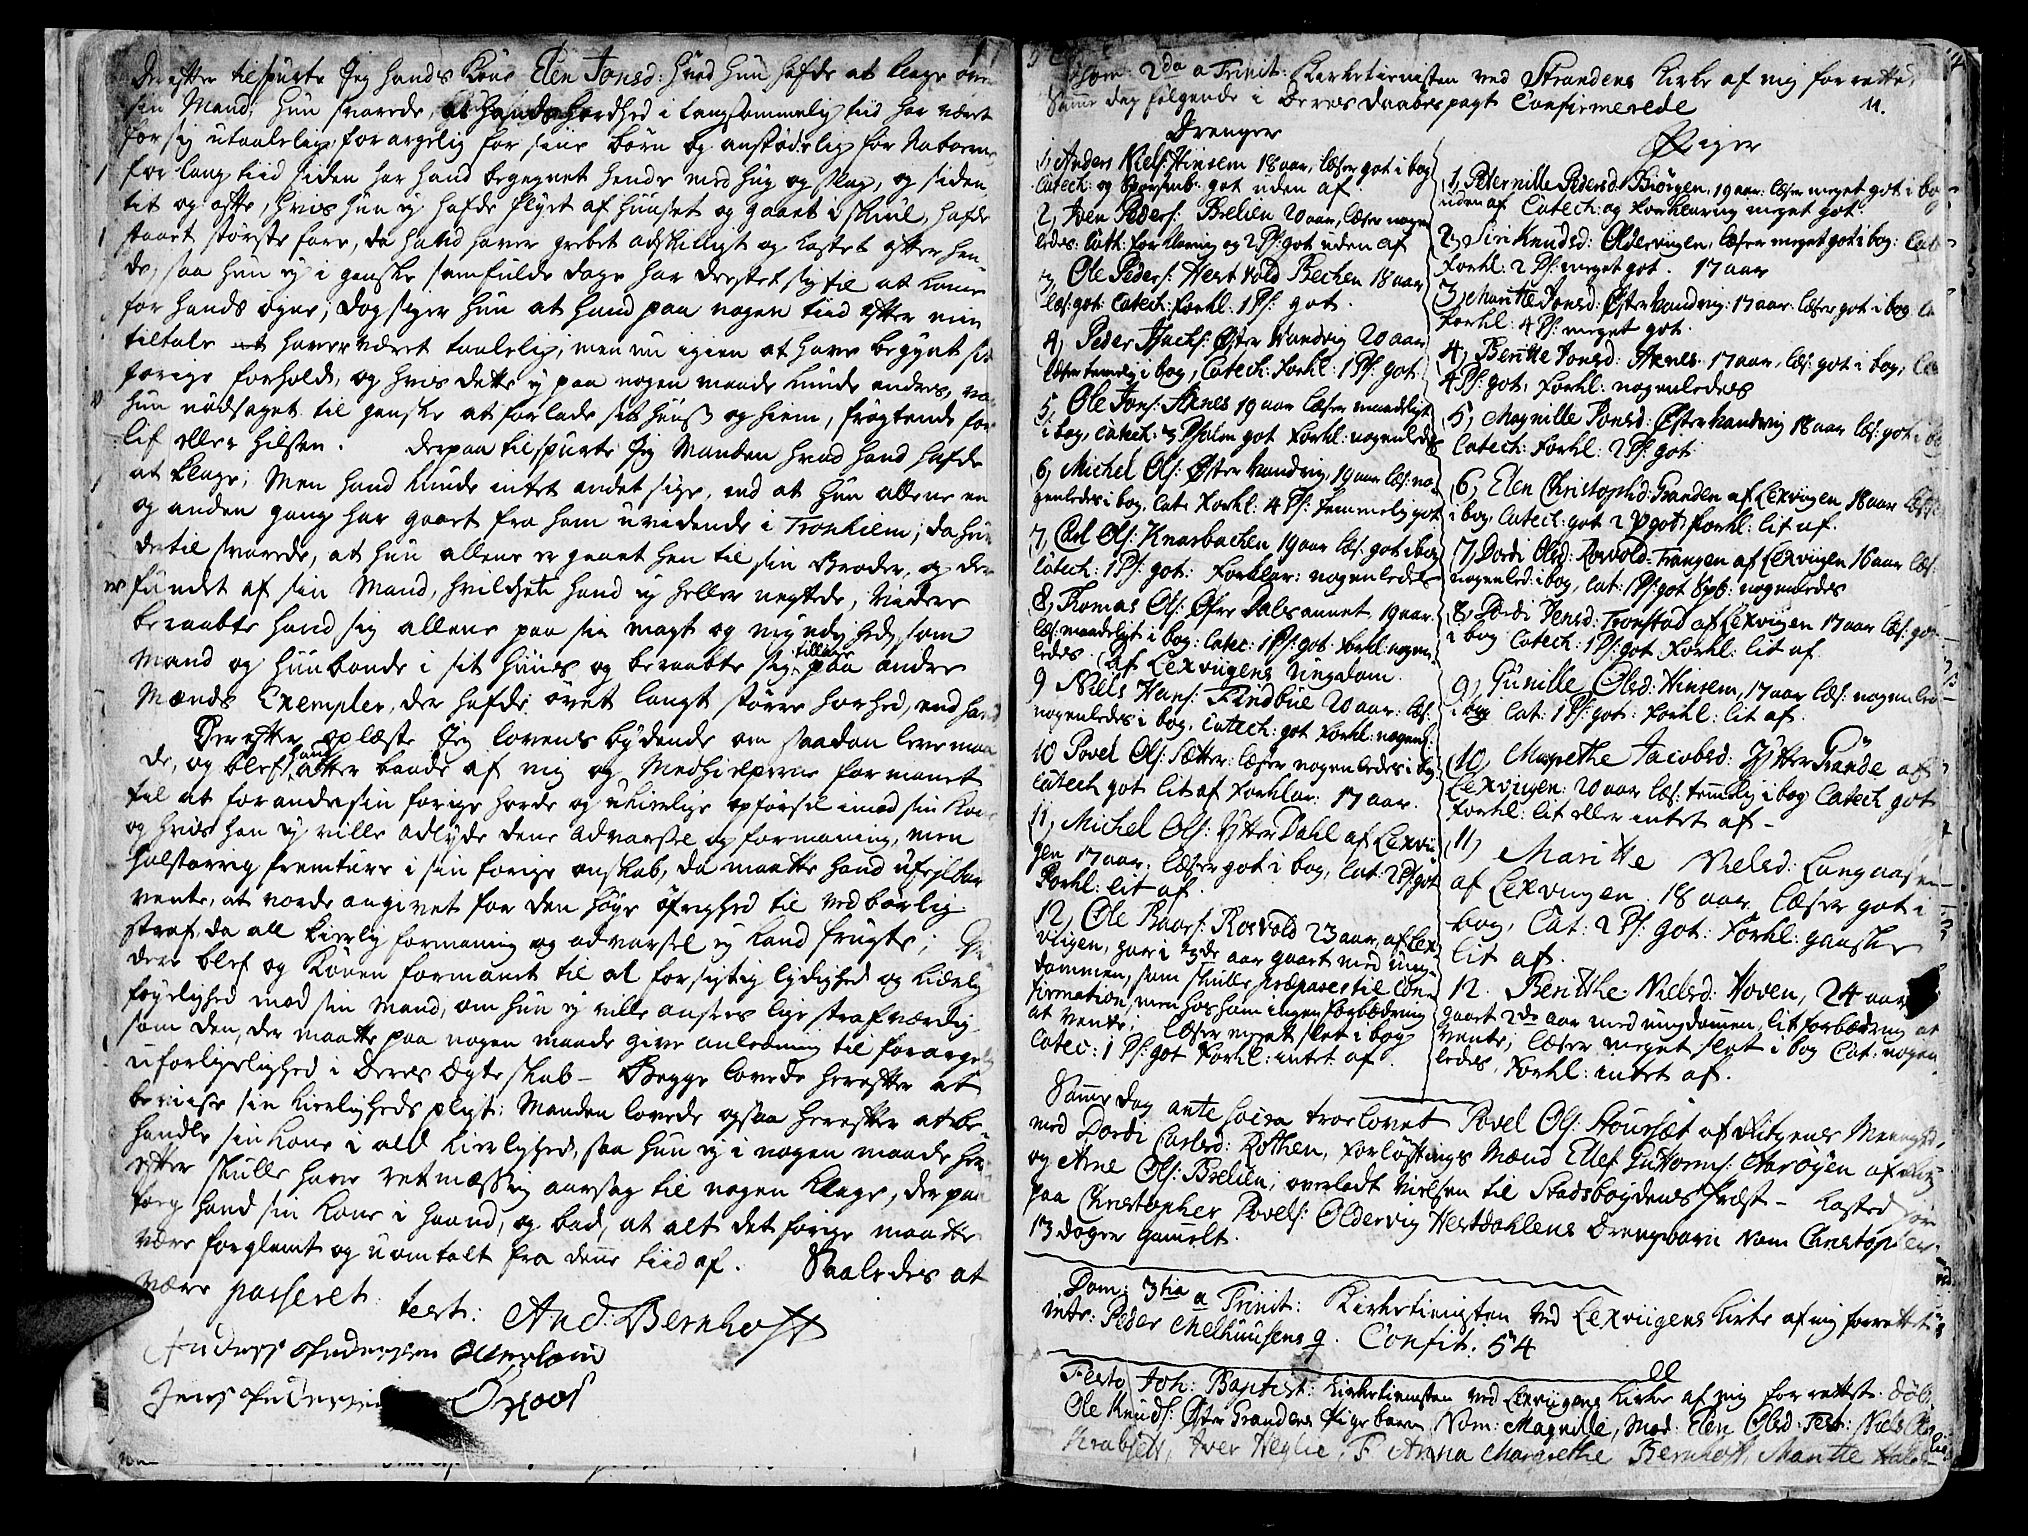 Derefter tilspurte Jeg hands Kone Elen Jonsd: hvad hun hafde at klage over
sin Mand; hun svarede, at hands hardhed i langsommelig tiid har været
for sig utaalelig, forargelig for siine børn og anstødelig for Naboerne
for lang tiid siden har hand begegnet hende med hug og slag, og siden
tit og ofte, hvis hun ej hafde flyet af huuset og gaaet i skiul, hafde
staaet største fare, da hand haver grebet adskilligt og kastet efter hen-
de, saa hun ej i ganske samfulde dage har drestet sig til at kome
for hands øyne; dog siger hun at hand paa nogen tiid efter min
tiltale haver været taalelig, men nu igien at have begynt sit
forige forhold, og hvis dette ej paa nogen maade kunde endres, var
hun nødsaget til ganske at forlade sit huus og hiem, frygtende for
lif eller hilsen. Derpaa tilspurte Jeg Manden hvad hand hafde
at klage; Men hand kunde intet andet sige, end at hun allene en
og anden gang har gaaet fra ham uvidende i Tronhiem; da hun
dertil svarede, at hun allene er gaaet hen til sin Broder, og der
fundet af sin Mand, hvilchet hand ej heller negtede; Videre
beraabte hand sig allene paa sin magt og myndighed, som
Mand og huusbonde i sit huus og beraabte sig tillige paa andre
Mænds Exempler, der hafde øvet langt større haarhed, end hand
Derefter oplæste Jeg lovens bydende om saadan levemaa-
de, og blef hand atter baade af mig og Medhielperne formanet
til at forandre sin forige harde og ukierlige opførsel imod sin Kone
og hvis han ej ville adlyde dene advarsel og formaning, men
halstarrig fremture i sin forige ondskab, da maatte hand ufeilbar
vente, at vorde angivet for den høye Øfrighed til vedbørlig
straf, da all kierlig formaning og advarsel ej kand frugte;
dere blef og Konen formanet til al forsigtig lydighed og lidelig
føyelighed mod sin Mand, om hun ej ville ansees lige strafværdig
som den, der maatte paa nogen maade give anledning til forargelig
uforligelighed i deres Ægteskab – Begge lovede herefter at
bevise sin kierligheds pligt: Manden lovede ogsaa herefter at be-
handle sin Kone i all kierlighed, saa hun ej i nogen maade her-
efter skulle have retmæssig aarsag til nogen klage, derpaa
tog hand sin Kone i haand, og bad, at alt det forige maatte
være forglemt og uomtalt fra dene tiid af. Saaledes at
være passeret. test: And: Bernhoft
Anders Pedersen Øverland
Jens Pedersen
Dom: 2da a Trinit: Kirketienisten ved Strandens Kirke af mig forrettet,
Same dag følgende i deres daabes pagt Confirmerede
11.
Drenger
1, Anders Niels: Hinsem 18 aar, læser got i bog
Catech: og Spørsmb: got uden af
2, Iver Peders: Brelien 20 aar, læser nogen-
ledes: Cath: forklaring og 2 Ps: got uden af
3, Ole Peders: Herstvold Bechen 18 aar
læs: got: Catech: Forkl: 1 Ps: got.
4, Peder Isachs: Øster Vandvig 20 aar
læser temelig i bog, Catech: Forkl: 1 Ps: got
5, Ole Jons: Aknes 19 aar læser maadeligt
i bog, Catech: 3 Psalm got Forkl: nogenledes
6, Michel Ols: Øster Vandvig, 19 aar læs: no-
genledes i bog, Cate: Forkl: 4 Ps: temmelig got
7, Carl Ols: Knarbachen 19 aar læs: got i bog
Catech: 1 Ps: got: Forklar: nogenledes
8, Thomas Ols: Øfre Dalsaunet 19 aar.
læs: maadeligt i bog: Catec: 1 Ps: got Forkl: nogen-
ledes. (Af Lexviigens Ungdom.
9 Niels Hans: Findbue 20 aar: læs:
nogenledes i bog, Catech: got Forkl: nogenl:
10 Povel Ols: Sætter: læser nogenledes i bog
Catech got lit af Forklar: 17 aar.
11, Michel Ols: Ytter Dahl af Lexvii-
gen 17 aar: læser got i bog, Cat: 2 Ps: got
Forkl: lit af.
12, Ole Baars: Rosvold 23 aar, af Lex-
viigen, har i 3de aar gaaet med ung-
dommen, som skulle præpareres til Con-
firmation, men hos ham ingen Forbædring
at vente; læser meget slet i bog
Catec: 1 Ps: got Forkl: intet af.
Piger
1, Peternille Pedersd: Biørgen, 19 aar: læser meget got i bog
uden af Catech: og Forklaring meget got.
2, Siri Knudsd: Oldervigen: læser meget got i bog: Cate
Forkl: 2 Ps: meget got. 17 aar
3, Maritte Jonsd: Øster Vandvig: 17 aar. læser got i bog Ca
Forkl: 4 Ps: meget got.
4, Beritte Jonsd: Aknes. 17 aar. læs: got i bog, Ca
4 Ps: got, Forkl: nogenledes
5, Magnille Jonsd: Øster Vandvig 18 aar læs: got i bog
Catech: Forkl: 2 Ps: got
6, Elen Christophd: Granden af Lexviigen 18 aar læs:
i bog, Catech: got 2 Ps got, Forkl: lit af.
7, Dordi Olsd: Rosvold-Trangen af Lexviigen 16 aar læs:
nogenled: i bog, Cat: 1 Ps: got Spb: nogenledes
8, Dordi Jensd: Tronstad af Lexviigen 17 aar læs: got
i bog Catech: 1 Ps: got Forkl: lit af
9, Gunille Olsd: Hinsem, 17 aar læs: nogenled
i bog Cat: 1 Ps: got: Forkl: lit af.
10, Margrethe Jacobsd: Ytter Grande af
Lexviigen: 20 aar læs: temelig i bog Catech got
Forkl: lit eller intet af –
11, Maritte Nielsd: Langaasen
af Lexviigen, 18 aar læser got i
bog, Cat: 2 Ps: got: Forkl: ganske
lit af.
12. Berithe Nielsd: Hoven, 24 aar
gaaet 2de aar med ungdomen, lit forbædring at
vente; læser meget slet i bog Cat: nogen-
ledes, Forkl: intet af.
Same dag ante sacra troelovet Povel Ols: Stoursæt af Ritsens Menighd,
med Dordi Carlsd: Rothen, Forløftnings Mænd Ellef Guttorms: Aarøyen af
og Arne Ols: Brelien; overladt Vielsen til Stadsbøgdenes Præst – Kasted jord
paa Christopher Povels: Oldervig Hestdahlens Drengbarn Nom Christopher
13 dager gamelt.
Dom: 3tia a Trinit: Kirketienisten ved Lexviigens Kirke af mig forrettet
intr: Peder Melhuusens q. Confit. 54
Festo Joh: Baptist: Kirketienisten ved Lexviigens Kirke af mig forrettet. døbt
Ole Knuds: Øster Grandens Pigebarn, Nom: Magnille, Mod: Elen Olsd: Test: Niels Ols
Krabset, Iver Heglie, F. Anna Margrethe Bernhoft, Maritte